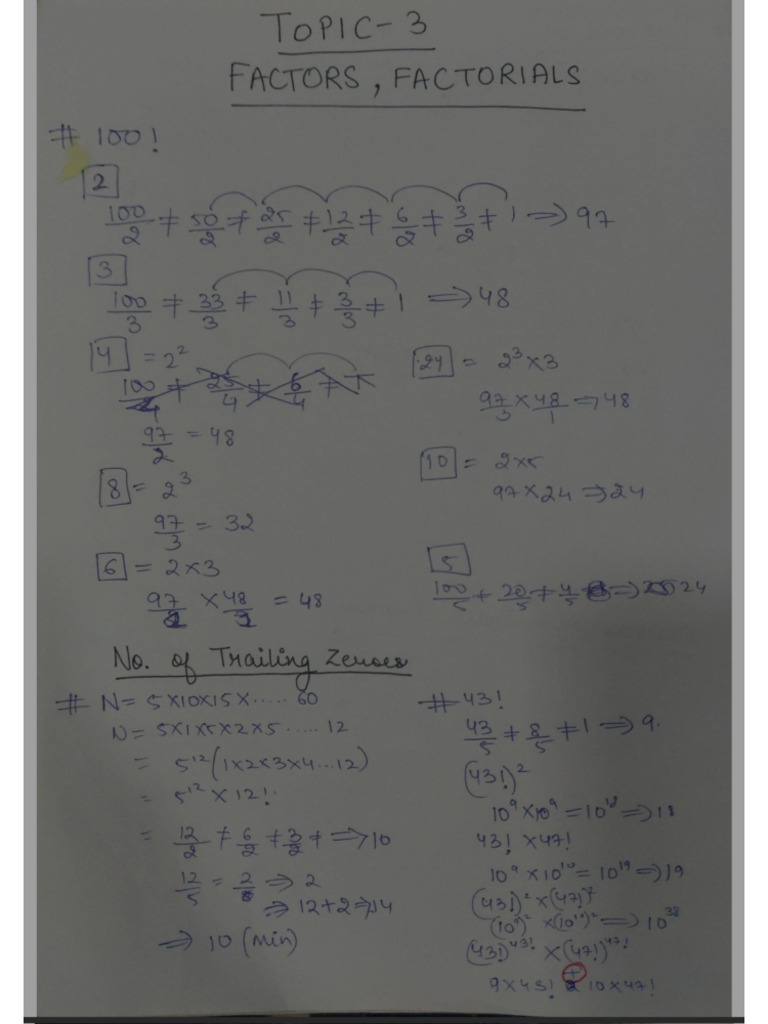 TOPIC-3
FACTORS, FACTORIALS
# 100!
2
100/2 + 50/2 + 25/2 + 12/2 + 6/2 + 3/2 + 1 ⇒ 97
3
100/3 + 33/3 + 11/3 + 3/3 + 1 ⇒ 48
4 = 2²
100/4 + 25/4 + 6/4 + 1
97/2 = 48
8 = 2³
97/3 = 32
6 = 2×3
97 × 48 = 48
24 = 2³×3
97/3 × 48/1 ⇒ 48
10 = 2×5
97×24 ⇒ 24
5
100/5 + 20/5 + 4/5 ⇒ 24
No. of Trailing Zeroes
# N = 5×10×15×..... 60
N = 5×1×5×2×5 ..... 12
= 5¹²(1×2×3×4...12)
= 5¹² × 12!
= 12/2 + 6/2 + 3/2 + ⇒ 10
12/5 = 2 ⇒ 2
⇒ 12+2 ⇒ 14
⇒ 10 (Min)
# 43!
43/5 + 8/5 + 1 ⇒ 9.
(43!)²
10⁹ × 10⁹ = 10¹⁸ ⇒ 18
43! × 47!
10⁹ × 10¹⁰ = 10¹⁹ ⇒ 19
(43!)² × (47!)²
(10⁹)² × (10¹⁰)² ⇒ 10³⁸
(43!)^43! × (47!)^47!
9×43! + 10×47!